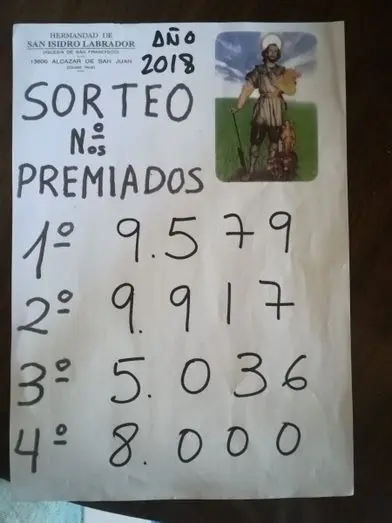 HERMANDAD DE
SAN ISIDRO LABRADOR
(IGLESIA DE SAN FRANCISCO)
13600 ALCAZAR DE SAN JUAN
(Ciudad Real)
AÑO
2018
SORTEO
Nº os
PREMIADOS
1º 9.579
2º 9.917
3º 5.036
4º 8.000